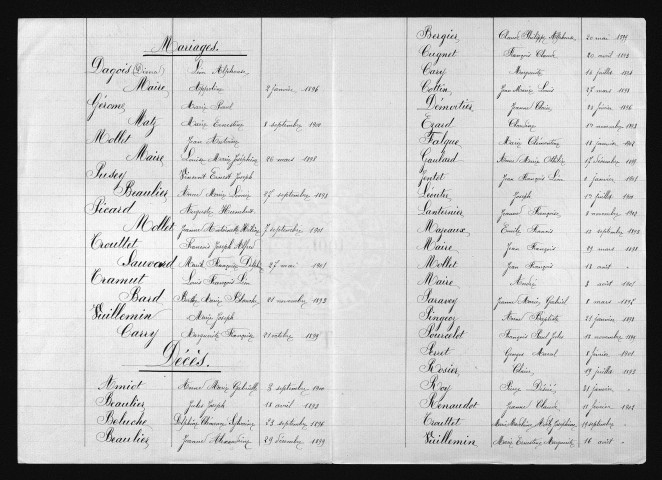 Mariages.
Dagois (Divorcé) Léon Alphonse
Maire Appoline 2 janvier 1896
Gérome Marie Paul
Matz Marie Ernestine 8 septembre 1900
Mollet Jean Antoine
Maire Louise Marie Joséphine 26 mars 1898
Pusey Vincent Joseph
Beaulier Anne Marie Louise 27 septembre 1893
Picard Auguste Humbert
Mollet Jeanne 7 septembre 1901
Crouttet Francois Joseph Alfred
Sauvard Marie Françoise 27 mai 1901
Cramut Louis François Léon
Bard Marie 21 novembre 1893
Vuillemin Marie Joseph
Carry Marguerite Françoise 21 octobre 1899
Décès.
Amiot Anne Marie Gabrielle 3 septembre 1900
Beaulier Jules Joseph 18 avril 1893
Beluche Delphine 23 septembre 1896
Beaulier Jeanne Alexandrine 29 décembre 1899
Bergier Claude Philippe Alphonse 20 mai 1899
Cugnet François Claude 20 avril 1893
Cary Marguerite 16 juillet 1894
Cottin Jean Marie Louis 27 mars 1893
Démortier Jeanne Claire 21 février 1896
Ezard Claudine 17 novembre 1893
Falque Marie Clémentine 18 janvier 1901
Gaulard Anne Marie 17 décembre 1899
Jentet Jean François Léon 2 janvier 1901
Léoutre Joseph 12 juillet 1900
Lanternier Jeanne Françoise 8 novembre 1902
Majeaux Emile Francis 12 septembre 1893
Maire Jean François 29 mars 1898
Mollet Jean François 13 août "
Maire André 3 août 1901
Paravey Jeanne Marie Gabriel 8 mars 1895
Pingeot 21 janvier 1893
Pourcelot François Paul Jules 13 novembre 1899
Perret Georges Marcel 8 février 1901
Rosier Claire 19 juillet 1893
Roy Désiré 31 janvier "
Renaudot Jeanne Claude 11 février 1901
Crouttet Marie Joséphine 19 septembre "
Vuillemin Marie Ernestine Marguerite 16 août "